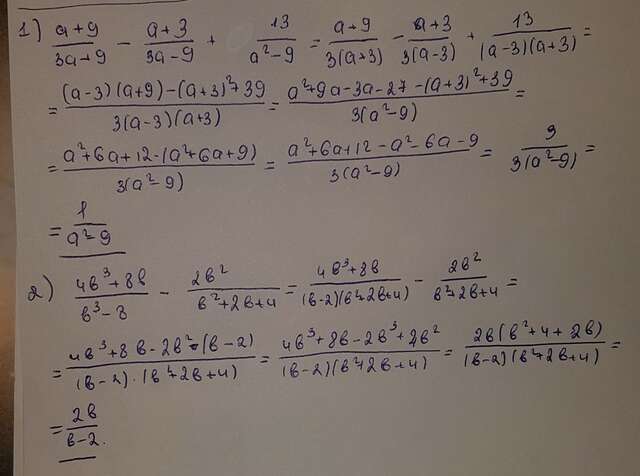 1) (a+9)/(3a+9) - (a+3)/(3a-9) + 13/(a²-9) = (a+9)/(3(a+3)) - (a+3)/(3(a-3)) + 13/((a-3)(a+3)) =
= ((a-3)(a+9)-(a+3)²+39)/(3(a-3)(a+3)) = (a²+9a-3a-27-(a+3)²+39)/(3(a²-9)) =
= (a²+6a+12-(a²+6a+9))/(3(a²-9)) = (a²+6a+12-a²-6a-9)/(3(a²-9)) = 9/(3(a²-9)) =
= 1/(a²-9)
2) (4b³+8b)/(b³-8) - 2b²/(b²+2b+4) = (4b³+8b)/((b-2)(b²+2b+4)) - 2b²/(b²+2b+4) =
= (4b³+8b-2b²·(b-2))/((b-2)·(b²+2b+4)) = (4b³+8b-2b³+4b²)/((b-2)(b²+2b+4)) = (2b(b²+4+2b))/((b-2)(b²+2b+4)) =
= 2b/(b-2).